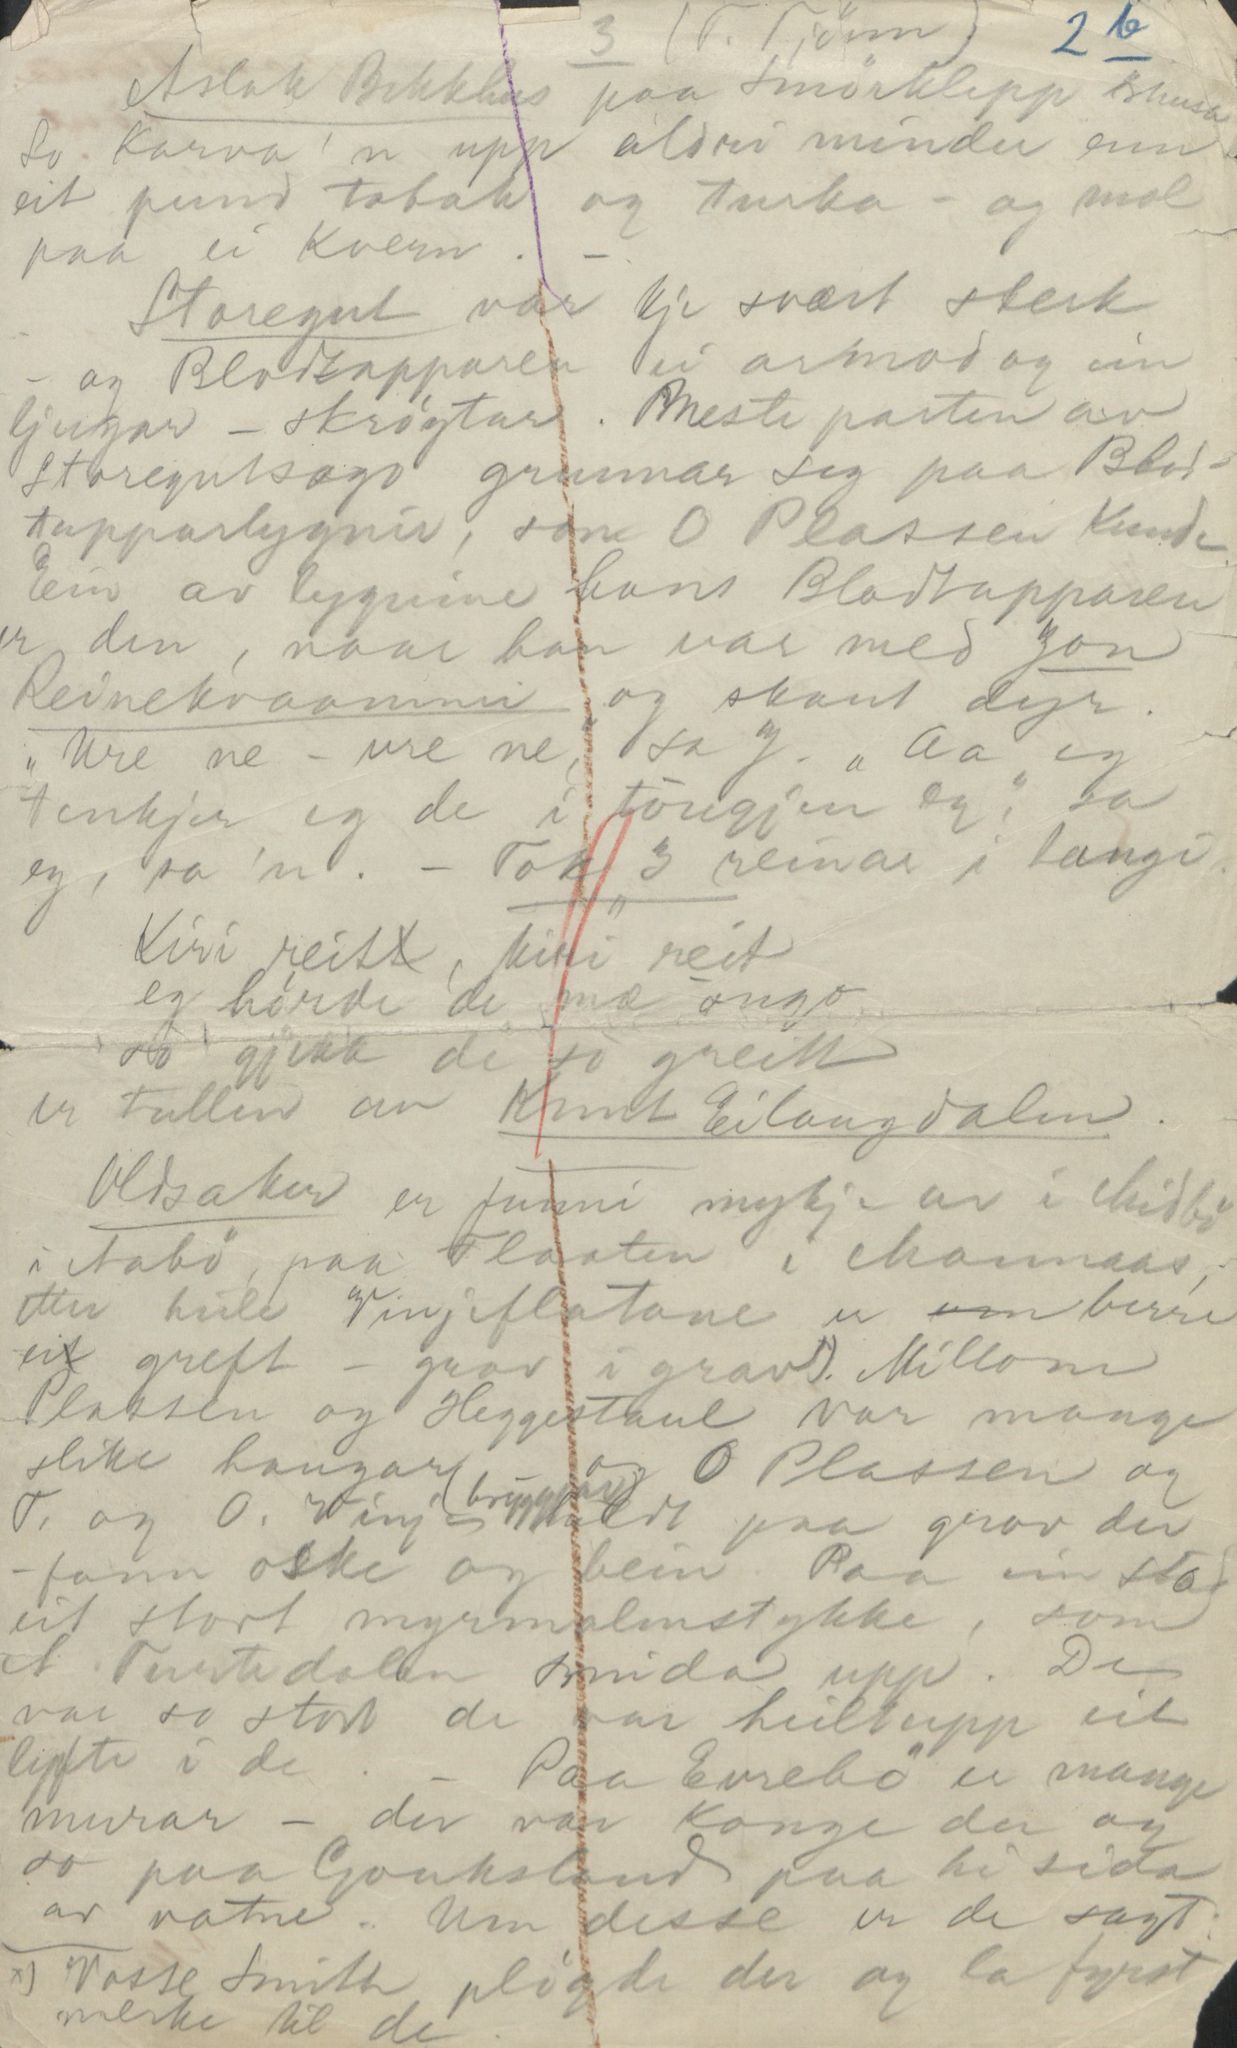 3 (T. Tjönn) 2 b
Aslak Bekkhus paa Smörklepp
so karva'n upp aldri mindre enn
eit pund tobak og turka - og mol
paa ei kvern. -
Storegut var kje svært sterk
- og Blodtapparen ei armod og ein
ljugar - skrögtar. Meste parten av
Storegutsogo grunnar seg paa Blod-
tapparlygnir, som O Plassen kunde.
Ein av lygnine hans Blodtapparen
er den, naar han var med Jon
Reinekvaammi og skaut dyr.
"Ure ne - ure ne, sa J. "Aa eg
tenkjer eg de i töregjen eg", sa
eg, sa'n. - Tok 3 reinar i langi.
Kivi reit, kivi reit
eg hörde de mæ ongo
so gjekk de so greitt
er tullen av Knut Eilaugdalen.
Oldsaker er funni mykje av i Midbö
i Nabö, paa Flaaten i Maannaas,
etter heile Vinjeflatane er berre
eit greft - grav i grav x). Millom
Plassen og Heggestaul var mange
slike haugar og O Plassen og
T. og O. Vinje (bryggjar) heldt paa grov der
- fann oske og bein. Paa ein stad
eit stort myrmalmstykke, som
A. Turtedalen smida upp. De
var so stort de var heiltupp eit
lyfte i de. - Paa Evrebö er mange
murar - der var konge der og
so paa Gouksland paa hi sida
av vatne. Um desse er de sagt:
x) Vosse Smith plögde der og la fyrst
merke til de.